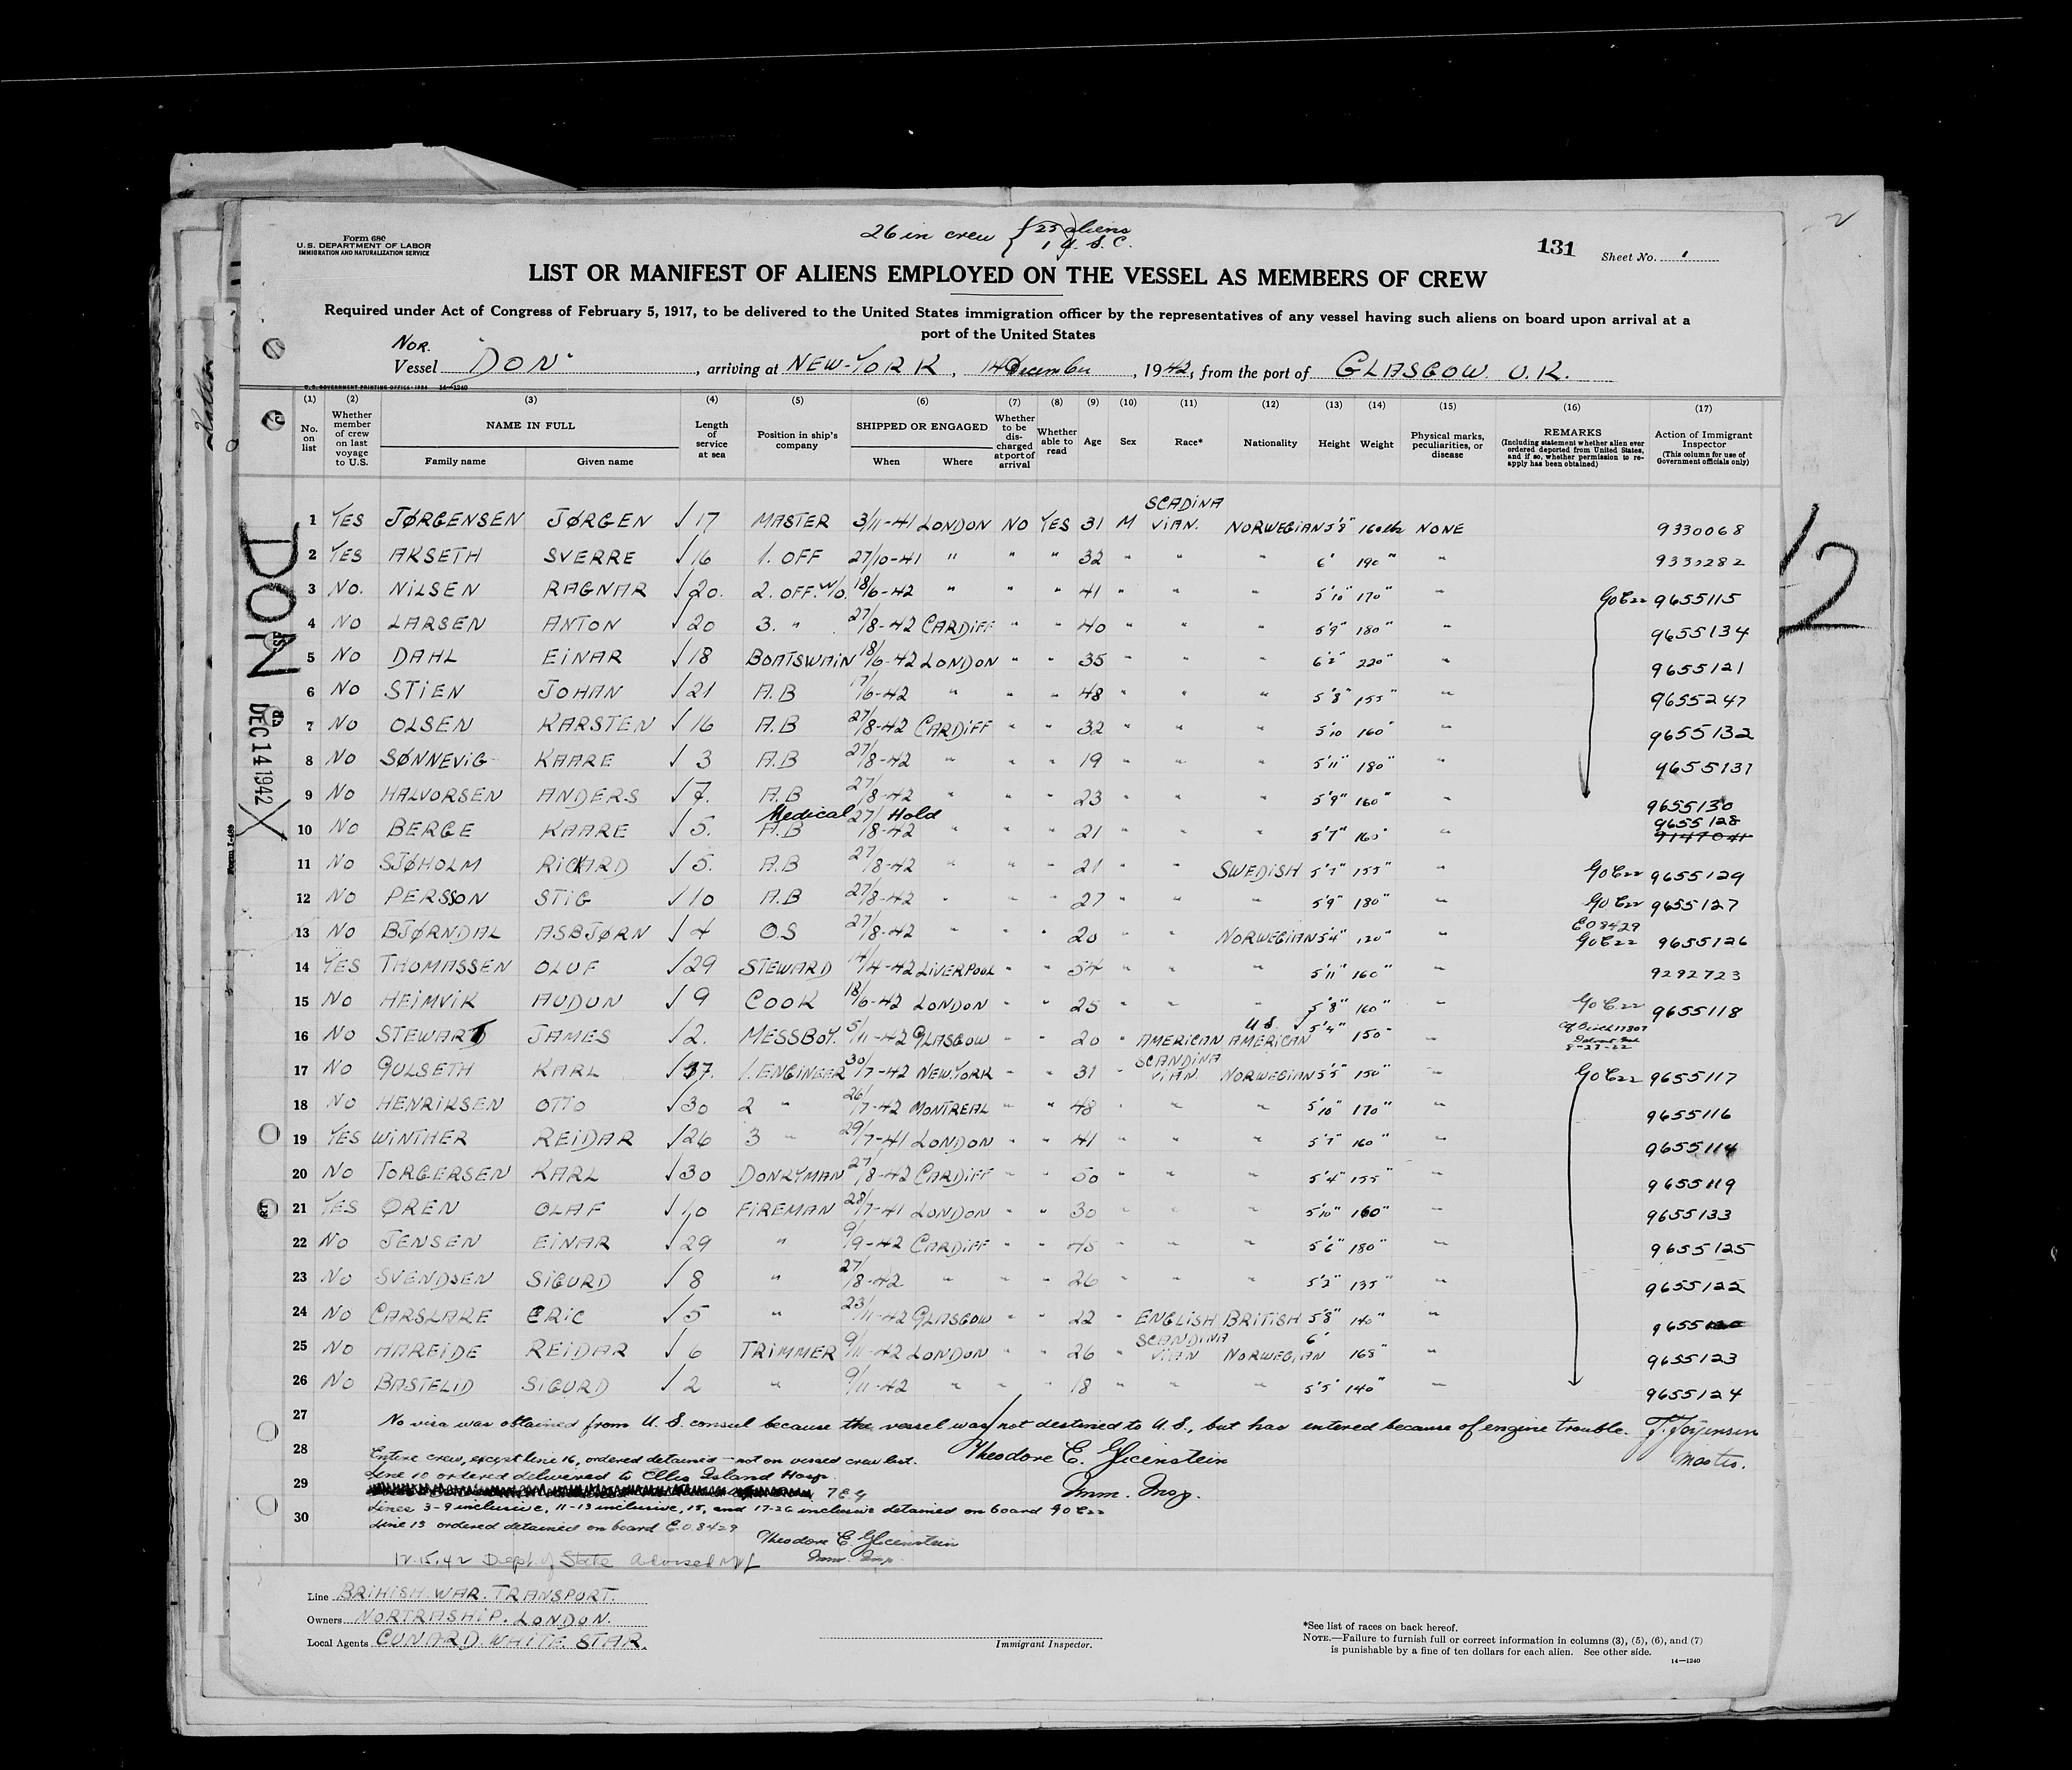 26 in crew { 25 aliens
1 U.S.C.
131
Form 680
U.S. DEPARTMENT OF LABOR
IMMIGRATION AND NATURALIZATION SERVICE
Sheet No. 1
LIST OR MANIFEST OF ALIENS EMPLOYED ON THE VESSEL AS MEMBERS OF CREW
Required under Act of Congress of February 5, 1917, to be delivered to the United States immigration officer by the representatives of any vessel having such aliens on board upon arrival at a
port of the United States
NOR.
Vessel "DON", arriving at NEW-YORK, 14 December, 1942, from the port of GLASGOW. U.K.
U.S. GOVERNMENT PRINTING OFFICE: 1934 14—1240
(1) (2) (3) (4) (5) (6) (7) (8) (9) (10) (11) (12) (13) (14) (15) (16) (17)
No. on list
Whether member of crew on last voyage to U.S.
NAME IN FULL
Family name
Given name
Length of service at sea
Position in ship's company
SHIPPED OR ENGAGED
When
Where
Whether to be discharged at port of arrival
Whether able to read
Age
Sex
Race*
Nationality
Height
Weight
Physical marks, peculiarities, or disease
REMARKS
(Including statement whether alien ever ordered deported from United States, and if so, whether permission to reapply has been obtained)
Action of Immigrant Inspector
(This column for use of Government officials only)
1 YES JØRGENSEN JØRGEN √ 17 MASTER 3/11-41 LONDON NO YES 31 M SCADINAVIAN. NORWEGIAN 5'8" 160 lbs NONE 9330068
2 YES AKSETH SVERRE √ 16 1. OFF 27/10-41 " " " 32 " " " 6' 190 " " 9330282
3 NO. NILSEN RAGNAR √ 20. 2. OFF. W/O. 18/6-42 " " " 41 " " " 5'10" 170" " 9655115
4 NO LARSEN ANTON √ 20 3. " 27/8-42 CARDIFF " " 40 " " " 5'9" 180" " 9655134
5 NO DAHL EINAR √ 18 BOATSWAIN 18/6-42 LONDON " " 35 " " " 6'2" 220" " 9655121
6 NO STIEN JOHAN √ 21 A.B 17/6-42 " " " 48 " " " 5'8" 155" " 9655247
7 NO OLSEN KARSTEN √ 16 A.B 27/8-42 CARDIFF " " 32 " " " 5'10 160" " 9655132
8 NO SØNNEVIG KAARE √ 3 A.B 27/8-42 " " " 19 " " " 5'11" 180" " 9655131
9 NO HALVORSEN ANDERS √ 7. A.B 27/8-42 " " " 23 " " " 5'9" 160" " 9655130
Medical Hold
10 NO BERGE KAARE √ 5. A.B 27/8-42 " " " 21 " " " 5'7" 160" " 9655128
11 NO SJØHOLM RICKARD √ 5. A.B 27/8-42 " " " 21 " " SWEDISH 5'7" 155" " 9655129
12 NO PERSSON STIG √ 10 A.B 27/8-42 " " " 27 " " " 5'9" 180" " 9655127
13 NO BJØRNDAL ASBJØRN √ 4 O.S 27/8-42 " " " 20 " " NORWEGIAN 5'4" 120" " EO 8429 9655126
14 YES THOMASSEN OLUF √ 29 STEWARD 14/4-42 LIVERPOOL " " 54 " " " 5'11" 160" " 9292723
15 NO HEIMVIK AUDUN √ 9 COOK 18/6-42 LONDON " " 25 " " " 5'8" 160" " 9655118
16 NO STEWART JAMES √ 2. MESSBOY. 5/11-42 GLASGOW " " 20 " AMERICAN U.S. AMERICAN 5'4" 150" " 8-23-22
17 NO GULSETH KARL √ 37. 1. ENGINEER 30/7-42 NEW.YORK " " 31 " SCANDINAVIAN. NORWEGIAN 5'5" 150" " 9655117
18 NO HENRIKSEN OTTO √ 30 2 " 26/7-42 MONTREAL " " 48 " " " 5'10" 170" " 9655116
19 YES WINTHER REIDAR √ 26 3 " 29/7-41 LONDON " " 41 " " " 5'7" 160" " 9655114
20 NO TORGERSEN KARL √ 30 DONKYMAN 27/8-42 CARDIFF " " 50 " " " 5'4" 155" " 9655119
21 YES ØREN OLAF √ 10 FIREMAN 28/7-41 LONDON " " 30 " " " 5'10" 160" " 9655133
22 NO JENSEN EINAR √ 29 " 9/9-42 CARDIFF " " 45 " " " 5'6" 180" " 9655125
23 NO SVENDSEN SIGURD √ 8 " 27/8-42 " " " 26 " " " 5'2" 135" " 9655122
24 NO CARSLARE ERIC √ 5 " 23/11-42 GLASGOW " " 22 " ENGLISH BRITISH 5'8" 140" " 9655120
25 NO HAREIDE REIDAR √ 6 TRIMMER 9/11-42 LONDON " " 26 " SCANDINAVIAN NORWEGIAN 6' 168" " 9655123
26 NO BASTELID SIGURD √ 2 " 9/11-42 " " " 18 " " " 5'5" 140" " 9655124
27 No visa was obtained from U.S. consul because the vessel was not destined to U.S., but has entered because of engine trouble. J. Jörgensen
Master.
28 Entire crew, except line 16, ordered detained — not on vessel crew list. Theodore E. Gleinstein
Line 10 ordered delivered to Ellis Island Hosp.
29 T E G Imm. Insp.
Lines 3-9 inclusive, 11-13 inclusive, 15, and 17-26 inclusive detained on board
30 Line 13 ordered detained on board E.O. 8429
Theodore E. Gleinstein
Imm. Insp.
12.15.42 Dept. of State advised
Line BRIHISH. WAR. TRANSPORT.
Owners NORTRASHIP. LONDON.
Local Agents CUNARD. WHITE. STAR.
Immigrant Inspector.
*See list of races on back hereof.
NOTE.—Failure to furnish full or correct information in columns (3), (5), (6), and (7)
is punishable by a fine of ten dollars for each alien. See other side.
14—1240
DON
DEC 14 1942
Form I-489
12